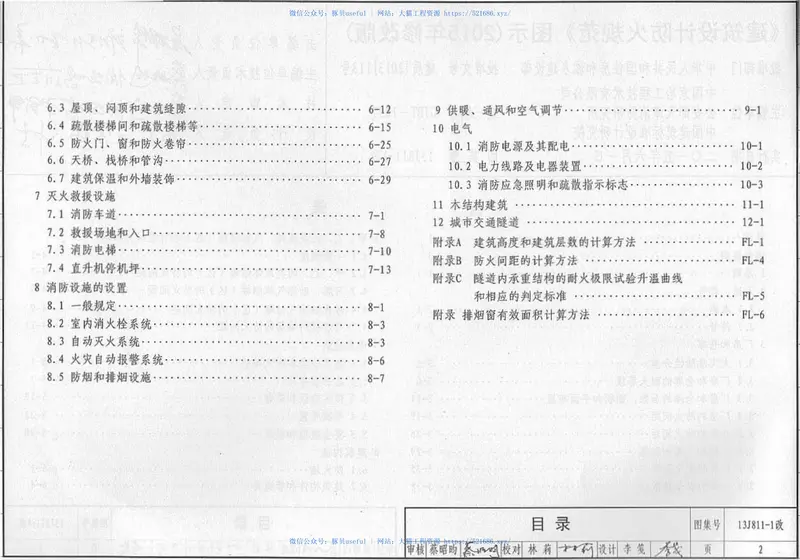 微信公众号：豚贝useful | 网站：大猫工程资源 https://521686.xyz/
6.3 屋顶、闷顶和建筑缝隙 6-12
6.4 疏散楼梯间和疏散楼梯等 6-15
6.5 防火门、窗和防火卷帘 6-25
6.6 天桥、栈桥和管沟 6-27
6.7 建筑保温和外墙装饰 6-29
7 灭火救援设施
7.1 消防车道 7-1
7.2 救援场地和入口 7-8
7.3 消防电梯 7-10
7.4 直升机停机坪 7-13
8 消防设施的设置
8.1 一般规定 8-1
8.2 室内消火栓系统 8-3
8.3 自动灭火系统 8-3
8.4 火灾自动报警系统 8-6
8.5 防烟和排烟设施 8-7
9 供暖、通风和空气调节 9-1
10 电气
10.1 消防电源及其配电 10-1
10.2 电力线路及电器装置 10-2
10.3 消防应急照明和疏散指示标志 10-3
11 木结构建筑 11-1
12 城市交通隧道 12-1
附录A 建筑高度和建筑层数的计算方法 FL-1
附录B 防火间距的计算方法 FL-4
附录C 隧道内承重结构的耐火极限试验升温曲线
和相应的判定标准 FL-5
附录 排烟窗有效面积计算方法 FL-6
目录 图集号 13J811-1改
审核 蔡昭昀 校对 林莉 设计 李 页 2
微信公众号：豚贝useful | 网站：大猫工程资源 https://521686.xyz/